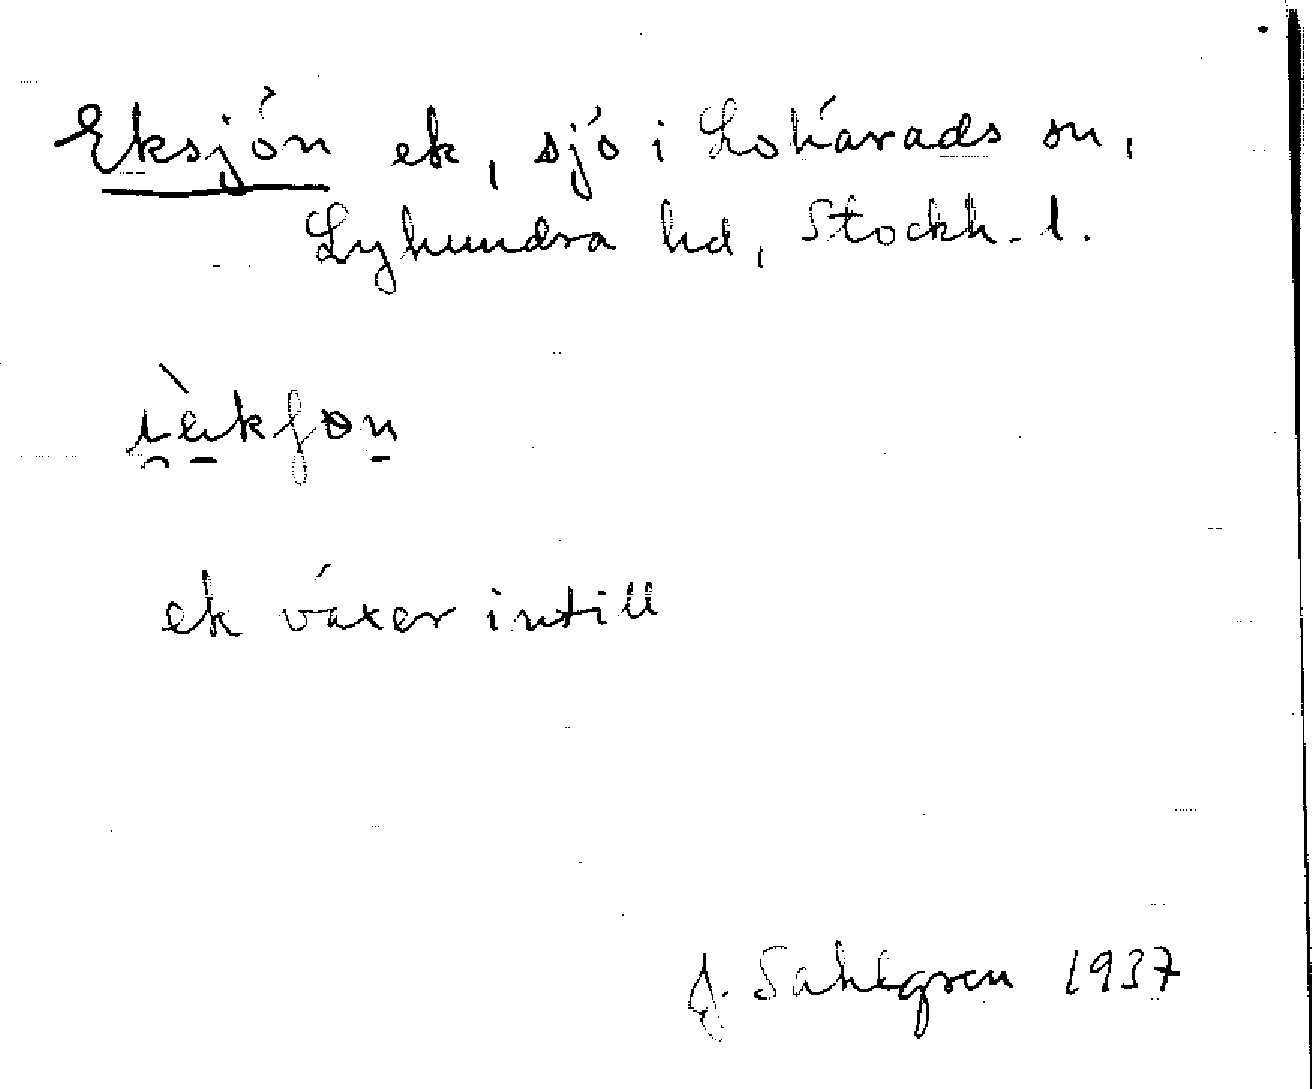 Eksjön ek, sjö i Lohärads sn,
Lyhundra hd, Stockh. l.
ek växer intill
J. Sahlgren 1937